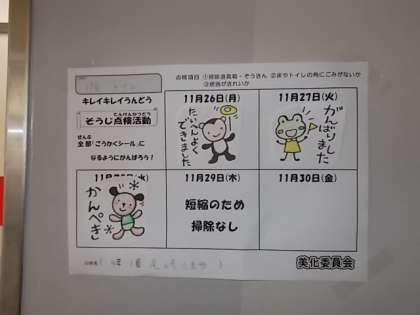 点検項目 ①掃除道具箱・ぞうきん ②床やトイレの角にごみがないか
③壁面がきれいか
キレイキレイうんどう
てんけんかつどう
そうじ点検活動
ぜんぶ
全部「ごうかくシール」に
なるようにがんばろう！
11月26日(月)
たいへんよく
できました
11月27日(火)
がんばりました
(水)
かんぺき
11月29日(木)
短縮のため
掃除なし
11月30日(金)
美化委員会